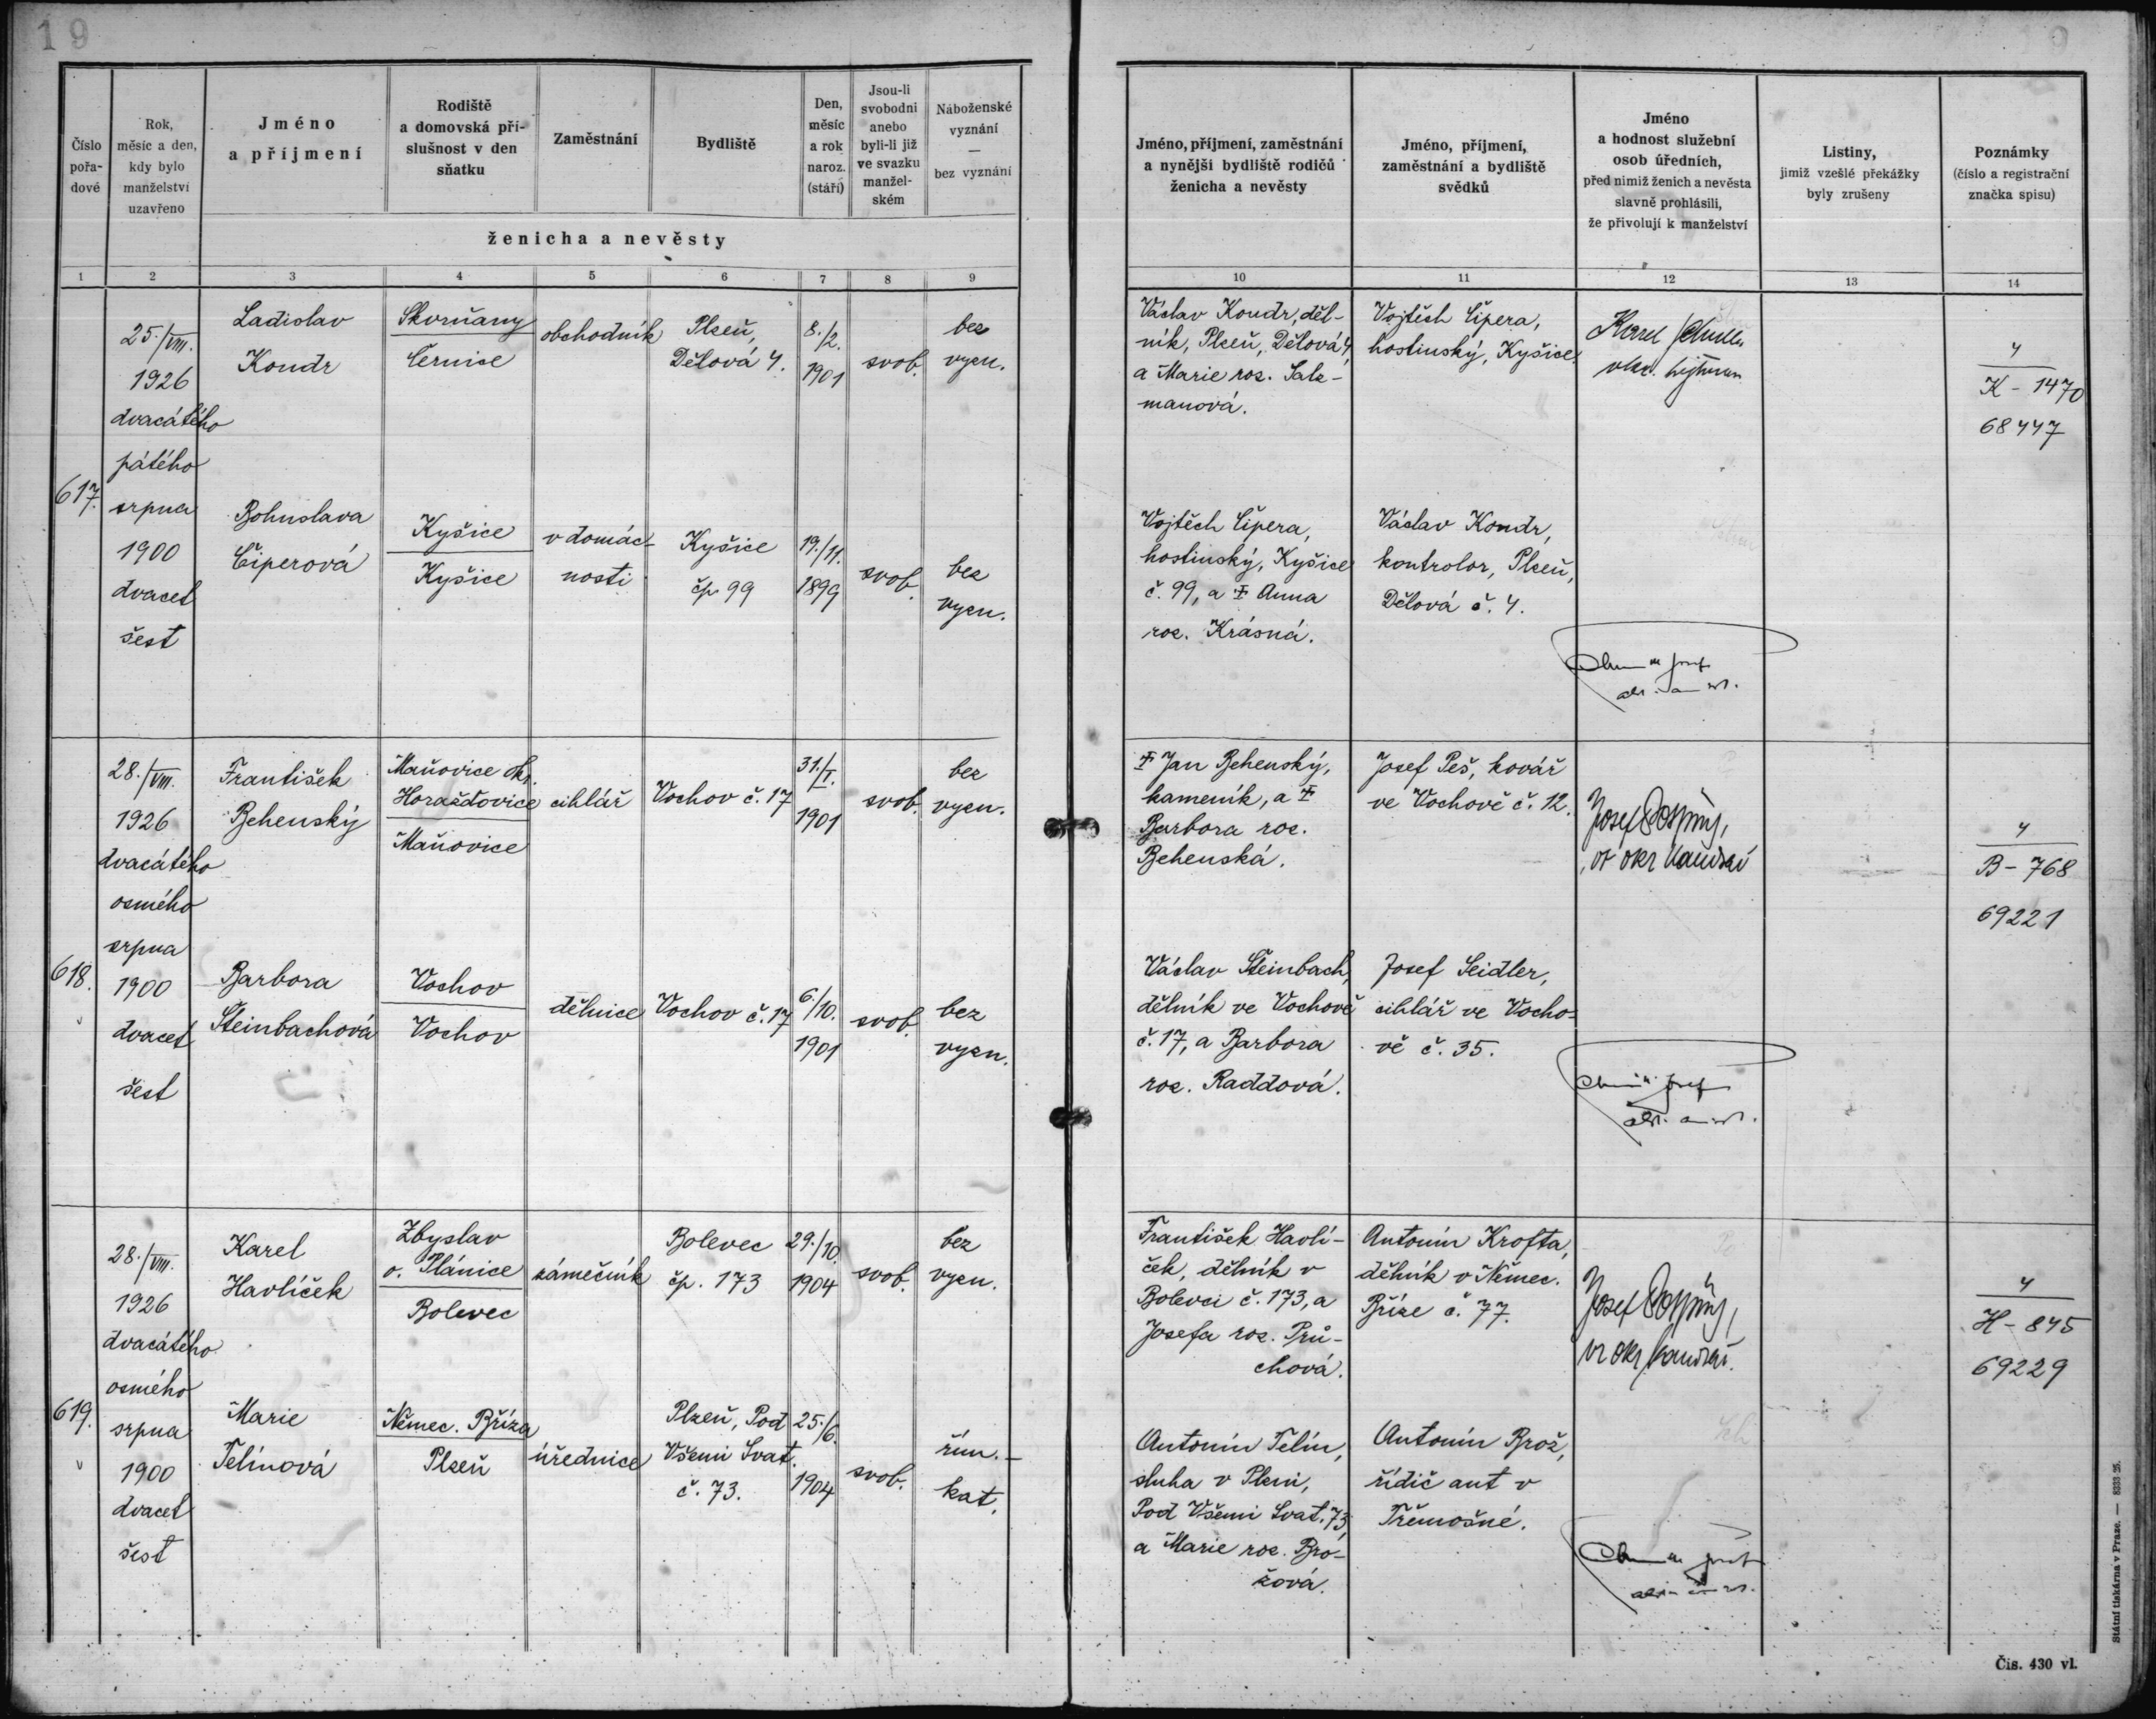 19
Číslo pořa- dové
Rok, měsíc a den, kdy bylo manželství uzavřeno
Jméno a příjmení
Rodiště a domovská pří- slušnost v den sňatku
Zaměstnání
Bydliště
Den, měsíc a rok naroz. (stáří)
Jsou-li svobodni anebo byli-li již ve svazku manžel- ském
Náboženské vyznání — bez vyznání
ženicha a nevěsty
Jméno, příjmení, zaměstnání a nynější bydliště rodičů ženicha a nevěsty
Jméno, příjmení, zaměstnání a bydliště svědků
Jméno a hodnost služební osob úředních, před nimiž ženich a nevěsta slavně prohlásili, že přivolují k manželství
Listiny, jimiž vzešlé překážky byly zrušeny
Poznámky (číslo a registrační značka spisu)
1 2 3 4 5 6 7 8 9 10 11 12 13 14
617.
25./VIII.
1926
dvacátého
pátého
srpna
1900
dvacet
šest
Ladislav
Kondr
Skvrňany
Černice
obchodník
Plzeň,
Dělová 4.
8./2.
1901
svob.
bez
vyzn.
Václav Kondr, děl-
ník, Plzeň, Dělová 4,
a Marie roz. Salz-
manová.
Vojtěch Čipera,
hostinský, Kyšice
Karel
4
K - 1470
68447
Bohuslava
Čiperová
Kyšice
Kyšice
v domác-
nosti
Kyšice
čp 99
19./11.
1899
svob.
bez
vyzn.
Vojtěch Čipera,
hostinský, Kyšice
č. 99, a ‡ Anna
roz. Krásná.
Václav Kondr,
kontrolor, Plzeň,
Dělová č. 4.
618.
28./VIII.
1926
dvacátého
osmého
srpna
1900
dvacet
šest
František
Behenský
Maňovice okr.
Horažďovice
Maňovice
cihlář
Vochov č. 17
31./I.
1901
svob.
bez
vyzn.
‡ Jan Behenský,
kameník, a ‡
Barbora roz.
Behenská.
Josef Peš, kovář
ve Vochově č. 12.
Josef Pospíšil,
4
B - 768
69221
Barbora
Steinbachová
Vochov
Vochov
dělnice
Vochov č. 17
6./10.
1901
svob.
bez
vyzn.
Václav Steinbach,
dělník ve Vochově
č. 17, a Barbora
roz. Raddová.
Josef Seidler,
cihlář ve Vocho-
vě č. 35.
619.
28./VIII.
1926
dvacátého
osmého
srpna
1900
dvacet
šest
Karel
Havlíček
Zbyslav
o. Plánice
Bolevec
zámečník
Bolevec
čp. 173
29./10.
1904
svob.
bez
vyzn.
František Havlí-
ček, dělník v
Bolevci č. 173, a
Josefa roz. Prů-
chová.
Antonín Krofta,
dělník v Němec.
Bříze č. 77.
Josef Pospíšil,
4
H - 845
69229
Marie
Telínová
Němec. Bříza
Plzeň
úřednice
Plzeň, Pod
Všemi Svat.
č. 73.
25./6.
1904
svob.
řím.-
kat.
Antonín Telín,
sluha v Plzni,
Pod Všemi Svat. 73,
a Marie roz. Bro-
žová.
Antonín Brož,
řídič aut v
Třemošné.
Státní tiskárna v Praze. — 8333 25.
Čís. 430 vl.